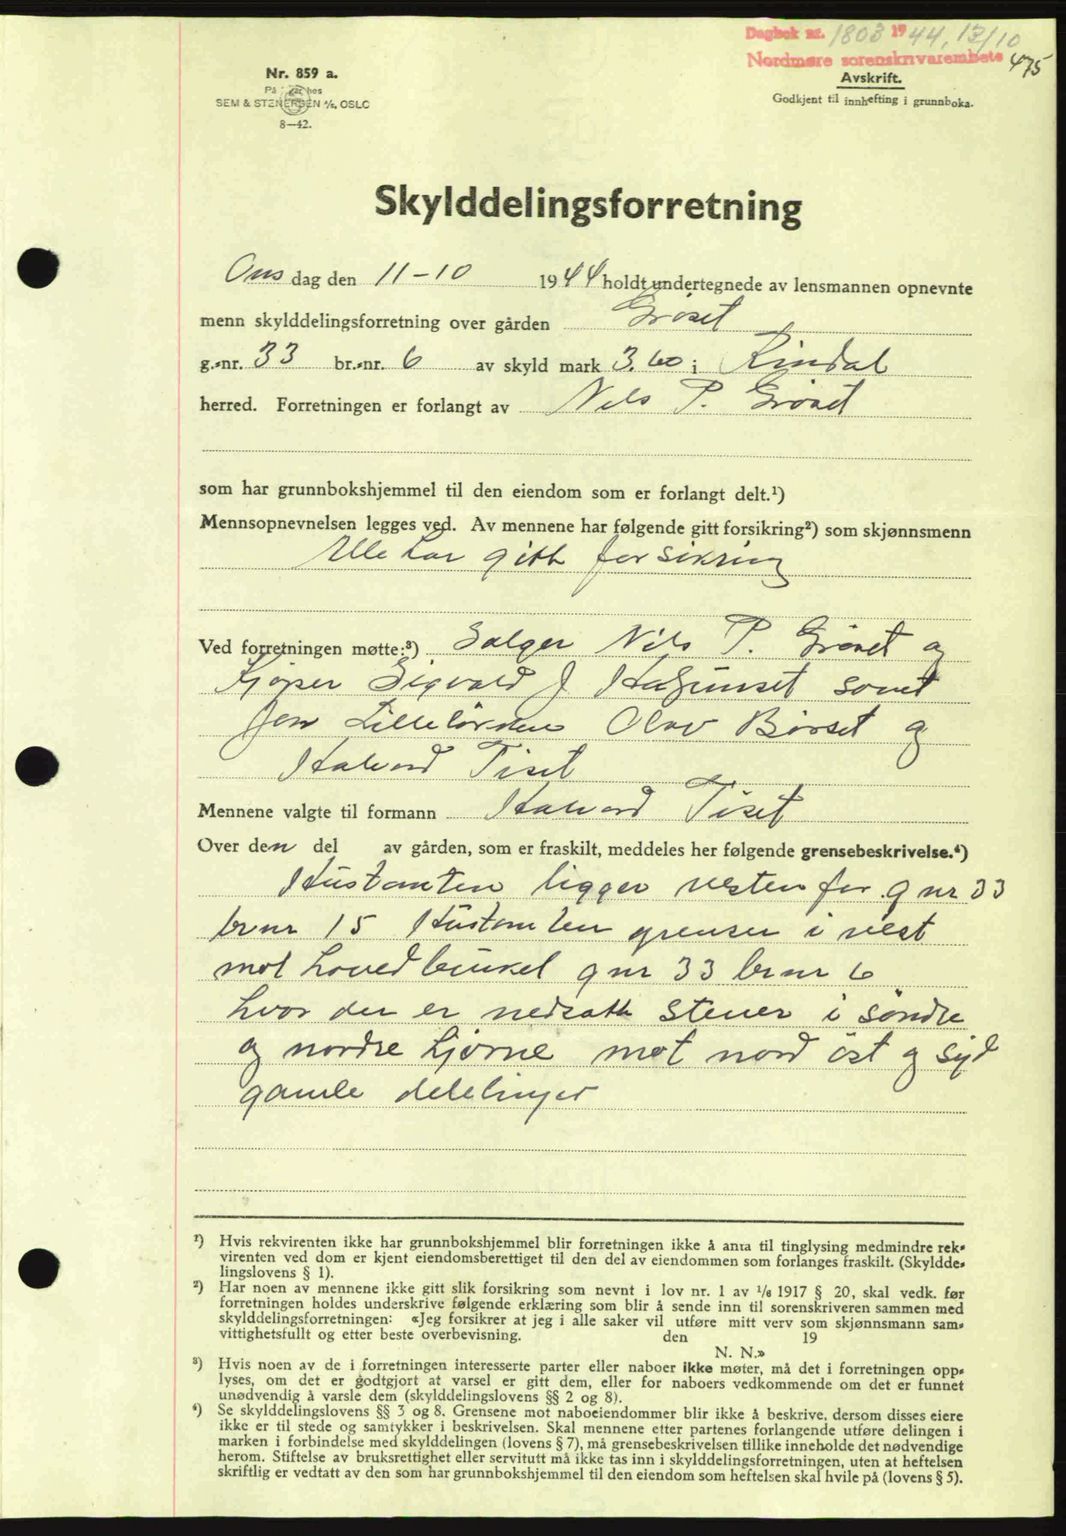 Dagbok nr. 1803 1944, 13/10
Nordmøre sorenskrivarembete
475
Nr. 859 a.
SEM & STENERSEN A/S, OSLO
8—42.
Avskrift.
Godkjent til innhefting i grunnboka.
Skylddelingsforretning
Onsdag den 11-10 1944 holdt undertegnede av lensmannen opnevnte
menn skylddelingsforretning over gården Grøset
g.-nr. 33 br.-nr. 6 av skyld mark 3.60 i Rindal
herred. Forretningen er forlangt av Nils P. Grøset
som har grunnbokshjemmel til den eiendom som er forlangt delt.¹)
Mennsopnevnelsen legges ved. Av mennene har følgende gitt forsikring²) som skjønnsmenn
Alle har gitt forsikring
Ved forretningen møtte:³) Selger Nils P. Grøset og
Kjøper Sigvald J Halgunset samt
Jon Lilleløkken Olav Børset og
Halvard Tiset
Mennene valgte til formann Halvard Tiset
Over den del av gården, som er fraskilt, meddeles her følgende grensebeskrivelse.⁴)
Hustomten ligger vesten for gnr 33
brnr 15 Hustomten grenser i vest
mot hovedbruket gnr 33 brnr 6
hvor der er nedsatt stener i søndre
og nordre hjørne mot nord öst og syd
gamle delelinjer
¹) Hvis rekvirenten ikke har grunnbokshjemmel blir forretningen ikke å anta til tinglysing medmindre rek-
virenten ved dom er kjent eiendomsberettiget til den del av eiendommen som forlanges fraskilt. (Skyldde-
lingslovens § 1).
²) Har noen av mennene ikke gitt slik forsikring som nevnt i lov nr. 1 av 1/6 1917 § 20, skal vedk. før
forretningen holdes underskrive følgende erklæring som blir å sende inn til sorenskriveren sammen med
skylddelingsforretningen: «Jeg forsikrer at jeg i alle saker vil utføre mitt verv som skjønnsmann sam-
vittighetsfullt og etter beste overbevisning. den 19
N. N.»
³) Hvis noen av de i forretningen interesserte parter eller naboer ikke møter, må det i forretningen opp-
lyses, om det er godtgjort at varsel er gitt dem, eller for naboers vedkommende om det er funnet
unødvendig å varsle dem (skylddelingslovens §§ 2 og 8).
⁴) Se skylddelingslovens §§ 3 og 8. Grensene mot naboeiendommer blir ikke å beskrive, dersom disses eiere
ikke er til stede og samtykker i beskrivelsen. Skal mennene etter partenes forlangende utføre delingen i
marken i forbindelse med skylddelingen (lovens § 7), må grensebeskrivelsen tillike inneholde det nødvendige
herom. Stiftelse av bruksrettighet eller servitutt må ikke tas inn i skylddelingsforretningen, uten at heftelsen
skriftlig er vedtatt av den som har grunnbokshjemmel til den eiendom som heftelsen skal hvile på (lovens § 5).